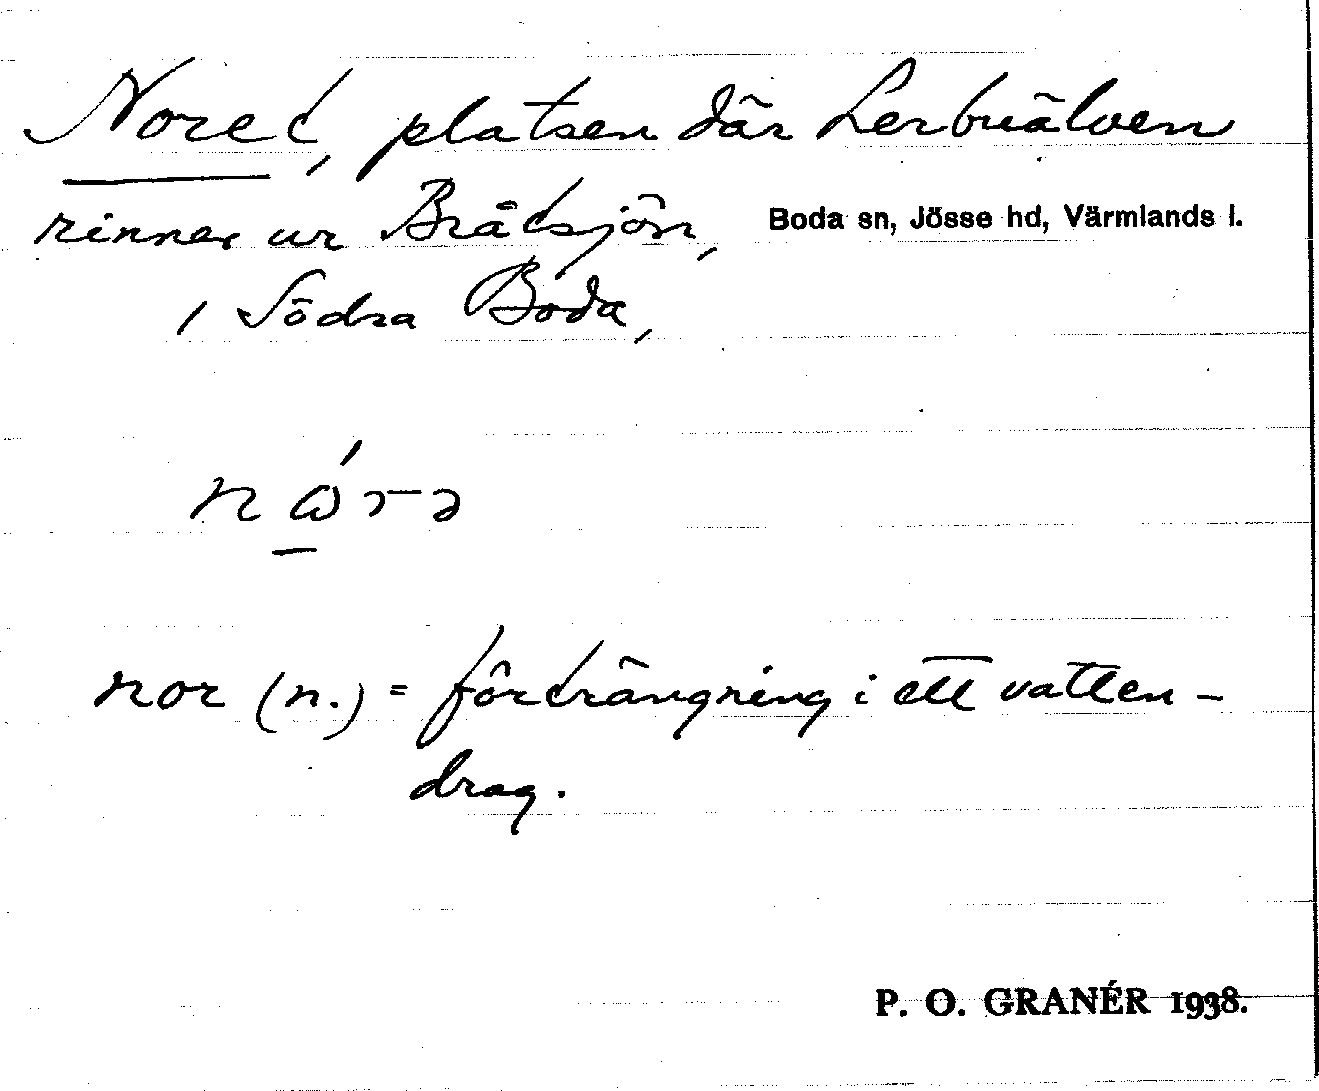 Noret, platsen där Lerbuälven
rinner ur Bråtsjön, Boda sn, Jösse hd, Värmlands l.
i Södra Boda,
nor (n.) = förträngning i ett vatten-
drag.
P. O. GRANÉR 1938.